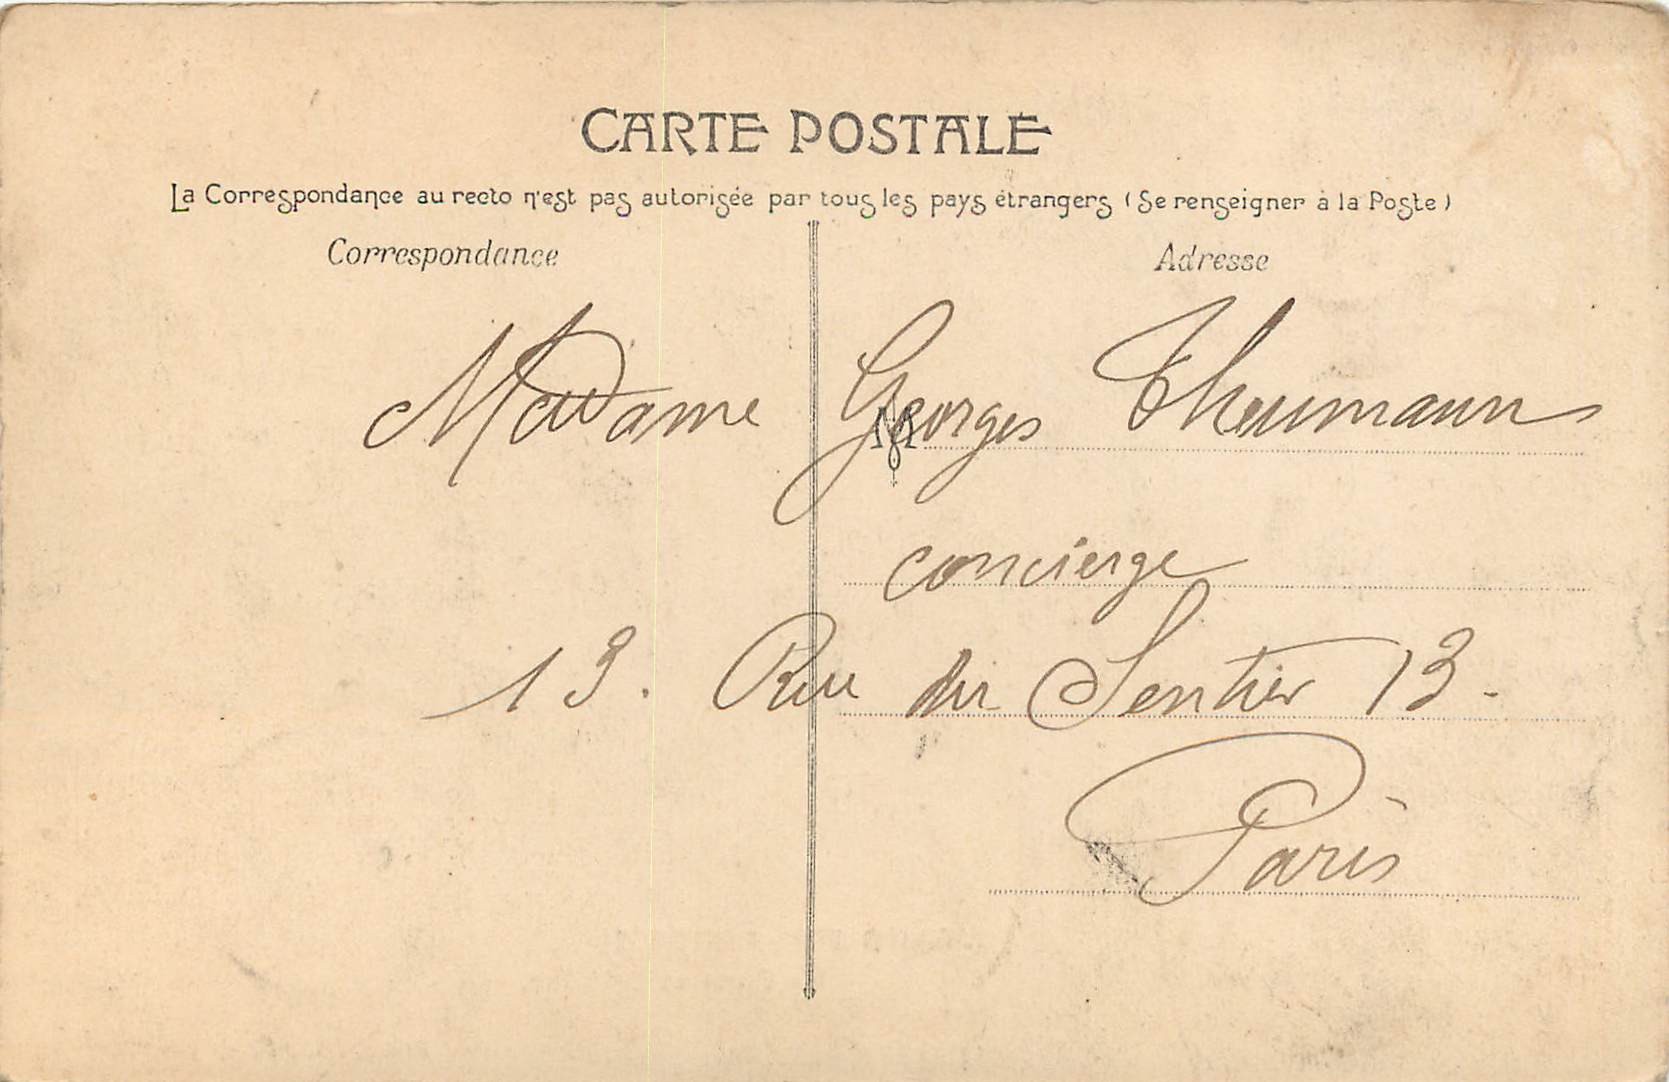 CARTE POSTALE
La Correspondance au recto n'est pas autorisée par tous les pays étrangers (Se renseigner à la Poste)
Correspondance
Adresse
Madame Georges Theumann
concierge
13. Rue du Sentier 13.
Paris